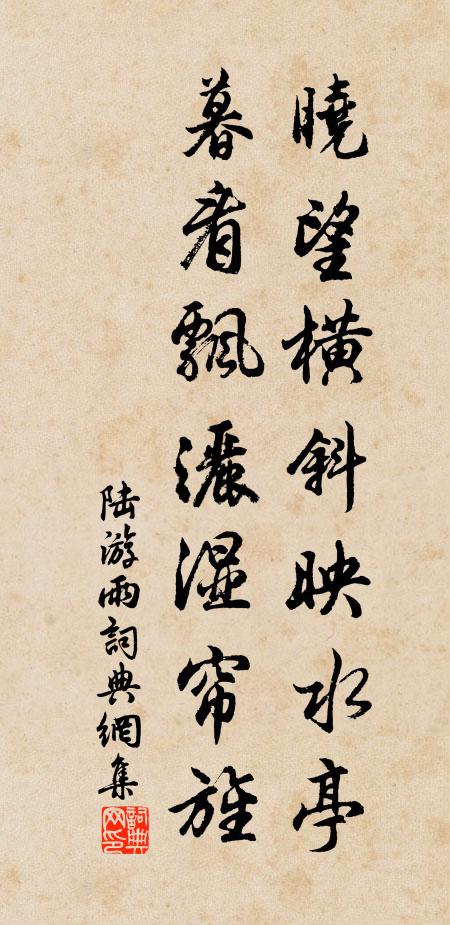 曉望橫斜映水亭
暮看飄灑湿帘旌
陆游雨詞典網集
詞典网印